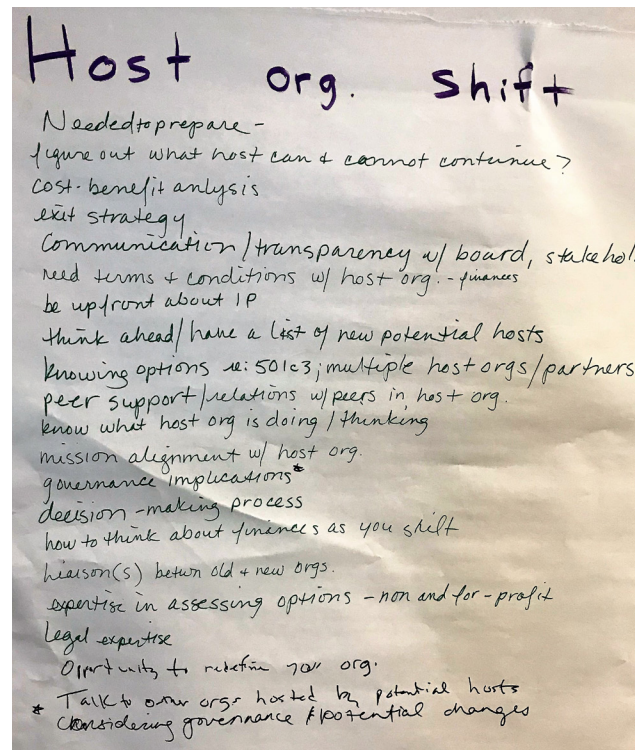 Host org. shift
Needed to prepare -
figure out what host can & cannot continue?
cost-benefit anlysis
exit strategy
Communication/transparency w/ board, stakehol
need terms & conditions w/ host org. - finances
be upfront about IP
think ahead/have a list of new potential hosts
knowing options re: 501c3; multiple host orgs/partners
peer support/relations w/peers in host org.
know what host org is doing/thinking
mission alignment w/ host org.
governance implications*
decision-making process
how to think about finances as you shift
liaison(s) betwn old & new orgs.
expertise in assessing options - non and for-profit
Legal expertise
Opportunity to redefine your org.
* Talk to other orgs hosted by potential hosts
considering governance & potential changes